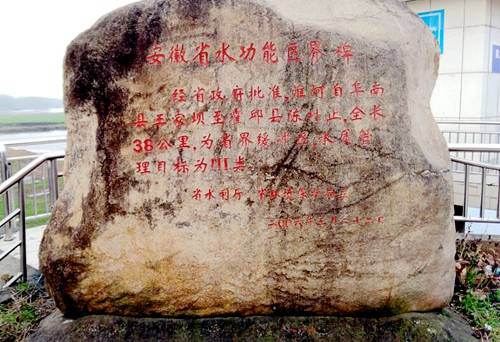 安徽省水功能区界碑
经省政府批准，淮河自阜南
县王家坝至霍邱县陈村止，全长
38公里，为省界缓冲区，水质管
理目标为III类
省水利厅